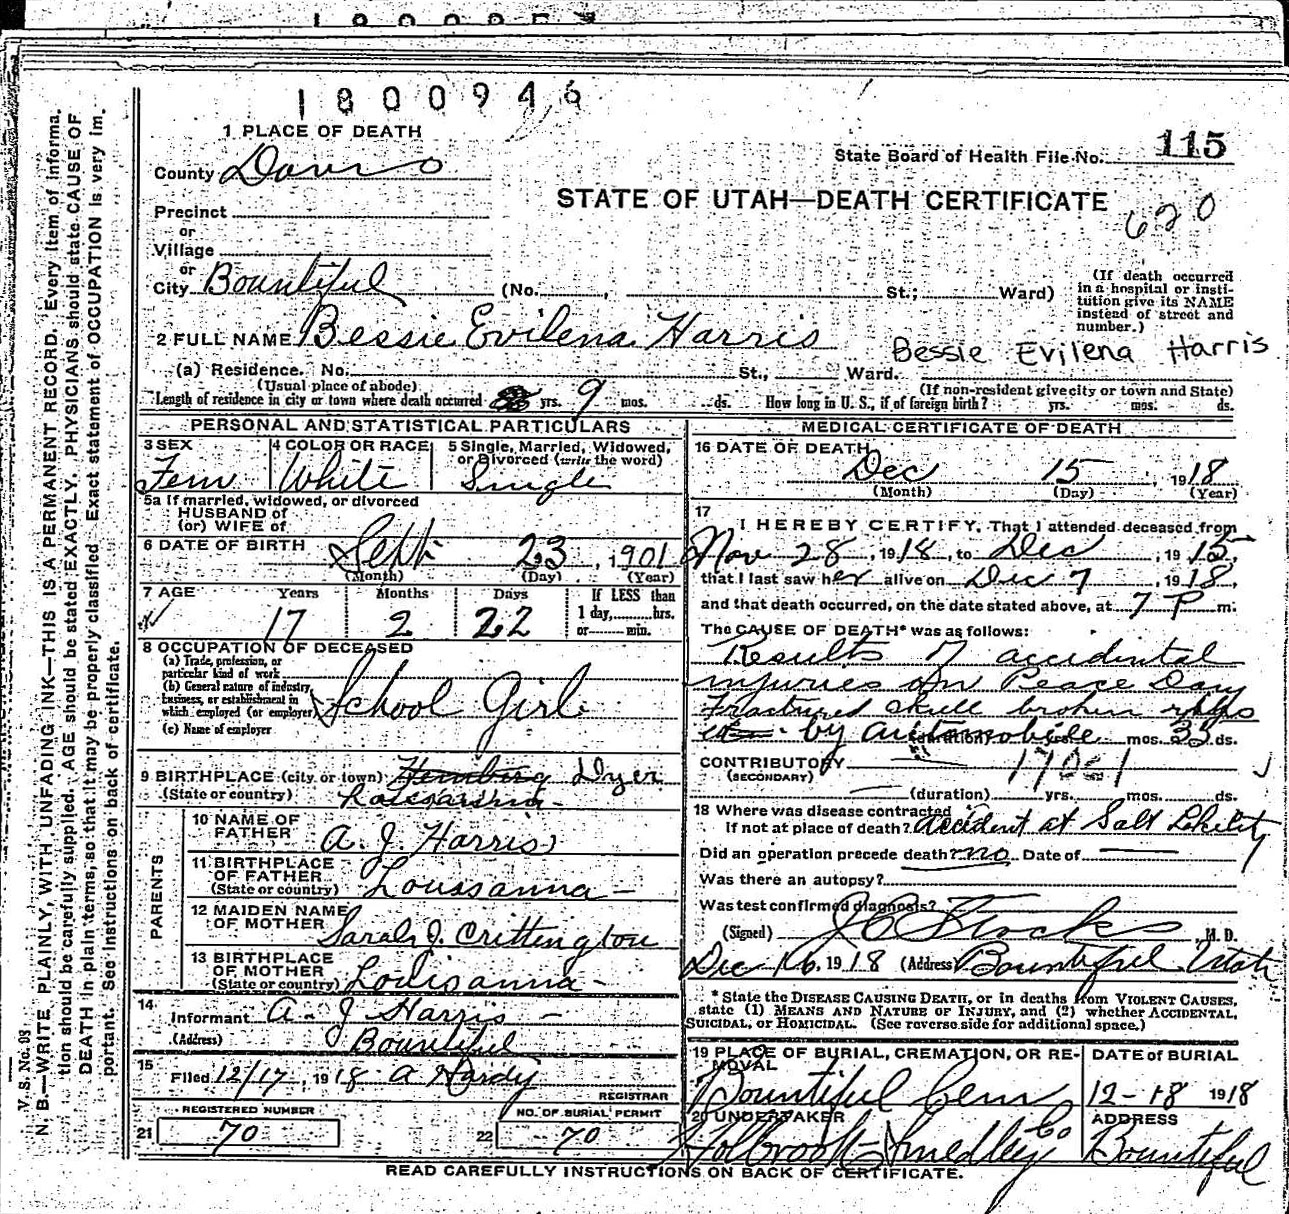 1800946
1 PLACE OF DEATH
County Davis
State Board of Health File No. 115
STATE OF UTAH—DEATH CERTIFICATE
620
Precinct
or
Village
or
City Bountiful (No. , St.; Ward)
(If death occurred in a hospital or institution give its NAME instead of street and number.)
2 FULL NAME Bessie Evilena Harris
Bessie Evilena Harris
(a) Residence. No. St., Ward.
(Usual place of abode) (If non-resident give city or town and State)
Length of residence in city or town where death occurred yrs. 9 mos. ds. How long in U. S., if of foreign birth? yrs. mos. ds.
PERSONAL AND STATISTICAL PARTICULARS
3 SEX Fem
4 COLOR OR RACE White
5 Single, Married, Widowed, or Divorced (write the word) Single
5a If married, widowed, or divorced
HUSBAND of
(or) WIFE of
6 DATE OF BIRTH Sept. 23, 1901
(Month) (Day) (Year)
7 AGE Years Months Days If LESS than
17 2 22 1 day, hrs.
or min.
8 OCCUPATION OF DECEASED
(a) Trade, profession, or particular kind of work
(b) General nature of industry, business, or establishment in which employed (or employer)
School Girl
(c) Name of employer
9 BIRTHPLACE (city or town) Dyer
(State or country)
PARENTS
10 NAME OF FATHER A. J. Harris
11 BIRTHPLACE OF FATHER
(State or country) Loussanna —
12 MAIDEN NAME OF MOTHER Sarah J. Crittington
13 BIRTHPLACE OF MOTHER
(State or country) Louisanna —
14
Informant A. J Harris —
(Address) Bountiful
15
Filed 12/17, 1918 A Hardy
REGISTRAR
REGISTERED NUMBER
21 70
NO. OF BURIAL PERMIT
22 70
MEDICAL CERTIFICATE OF DEATH
16 DATE OF DEATH
Dec 15 1918
(Month) (Day) (Year)
17
I HEREBY CERTIFY, That I attended deceased from
Nov 28, 1918, to Dec, 1915,
that I last saw her alive on Dec 7, 1918,
and that death occurred, on the date stated above, at 7 P m.
The CAUSE OF DEATH* was as follows:
Results of accidental
injuries on Peace Day
Fractured skull broken ribs
by automobile mos. 33 ds.
CONTRIBUTORY
(SECONDARY)
(duration) yrs. mos. ds.
18 Where was disease contracted
if not at place of death? accident at Salt Lake City
Did an operation precede death? no Date of —
Was there an autopsy?
Was test confirmed diagnosis?
(Signed) J C Stocks, M. D.
Dec 16, 1918 (Address) Bountiful Utah
* State the DISEASE CAUSING DEATH, or in deaths from VIOLENT CAUSES,
state (1) MEANS AND NATURE OF INJURY, and (2) whether ACCIDENTAL,
SUICIDAL, or HOMICIDAL. (See reverse side for additional space.)
19 PLACE OF BURIAL, CREMATION, OR REMOVAL
Bountiful Cem
DATE of BURIAL
12-18 1918
20 UNDERTAKER
Holbrook-Smedley Co
ADDRESS
Bountiful
READ CAREFULLY INSTRUCTIONS ON BACK OF CERTIFICATE.
V. S. No. 98
N. B.—WRITE PLAINLY, WITH UNFADING INK—THIS IS A PERMANENT RECORD. Every item of informa-
tion should be carefully supplied. AGE should be stated EXACTLY. PHYSICIANS should state CAUSE OF
DEATH in plain terms, so that it may be properly classified. Exact statement of OCCUPATION is very im-
portant. See instructions on back of certificate.